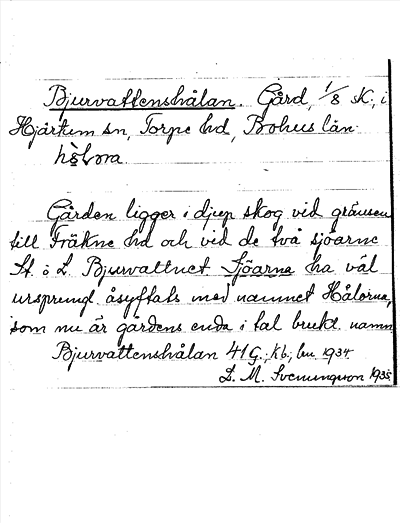 Bjurvattenshålan. Gård, 1/8 sk., i
Hjärtum sn, Torpe hd, Bohus län.
Gården ligger i djup skog vid gränsen
till Fräkne hd och vid de två sjöarne
St. o L. Bjurvattnet. Sjöarna ha väl
ursprungl. åsyftats med namnet Hålorna,
som nu är gårdens enda i tal brukl. namn
Bjurvattenshålan 41 G.; kb.; bu. 1934
L. M. Svenungsson 1935